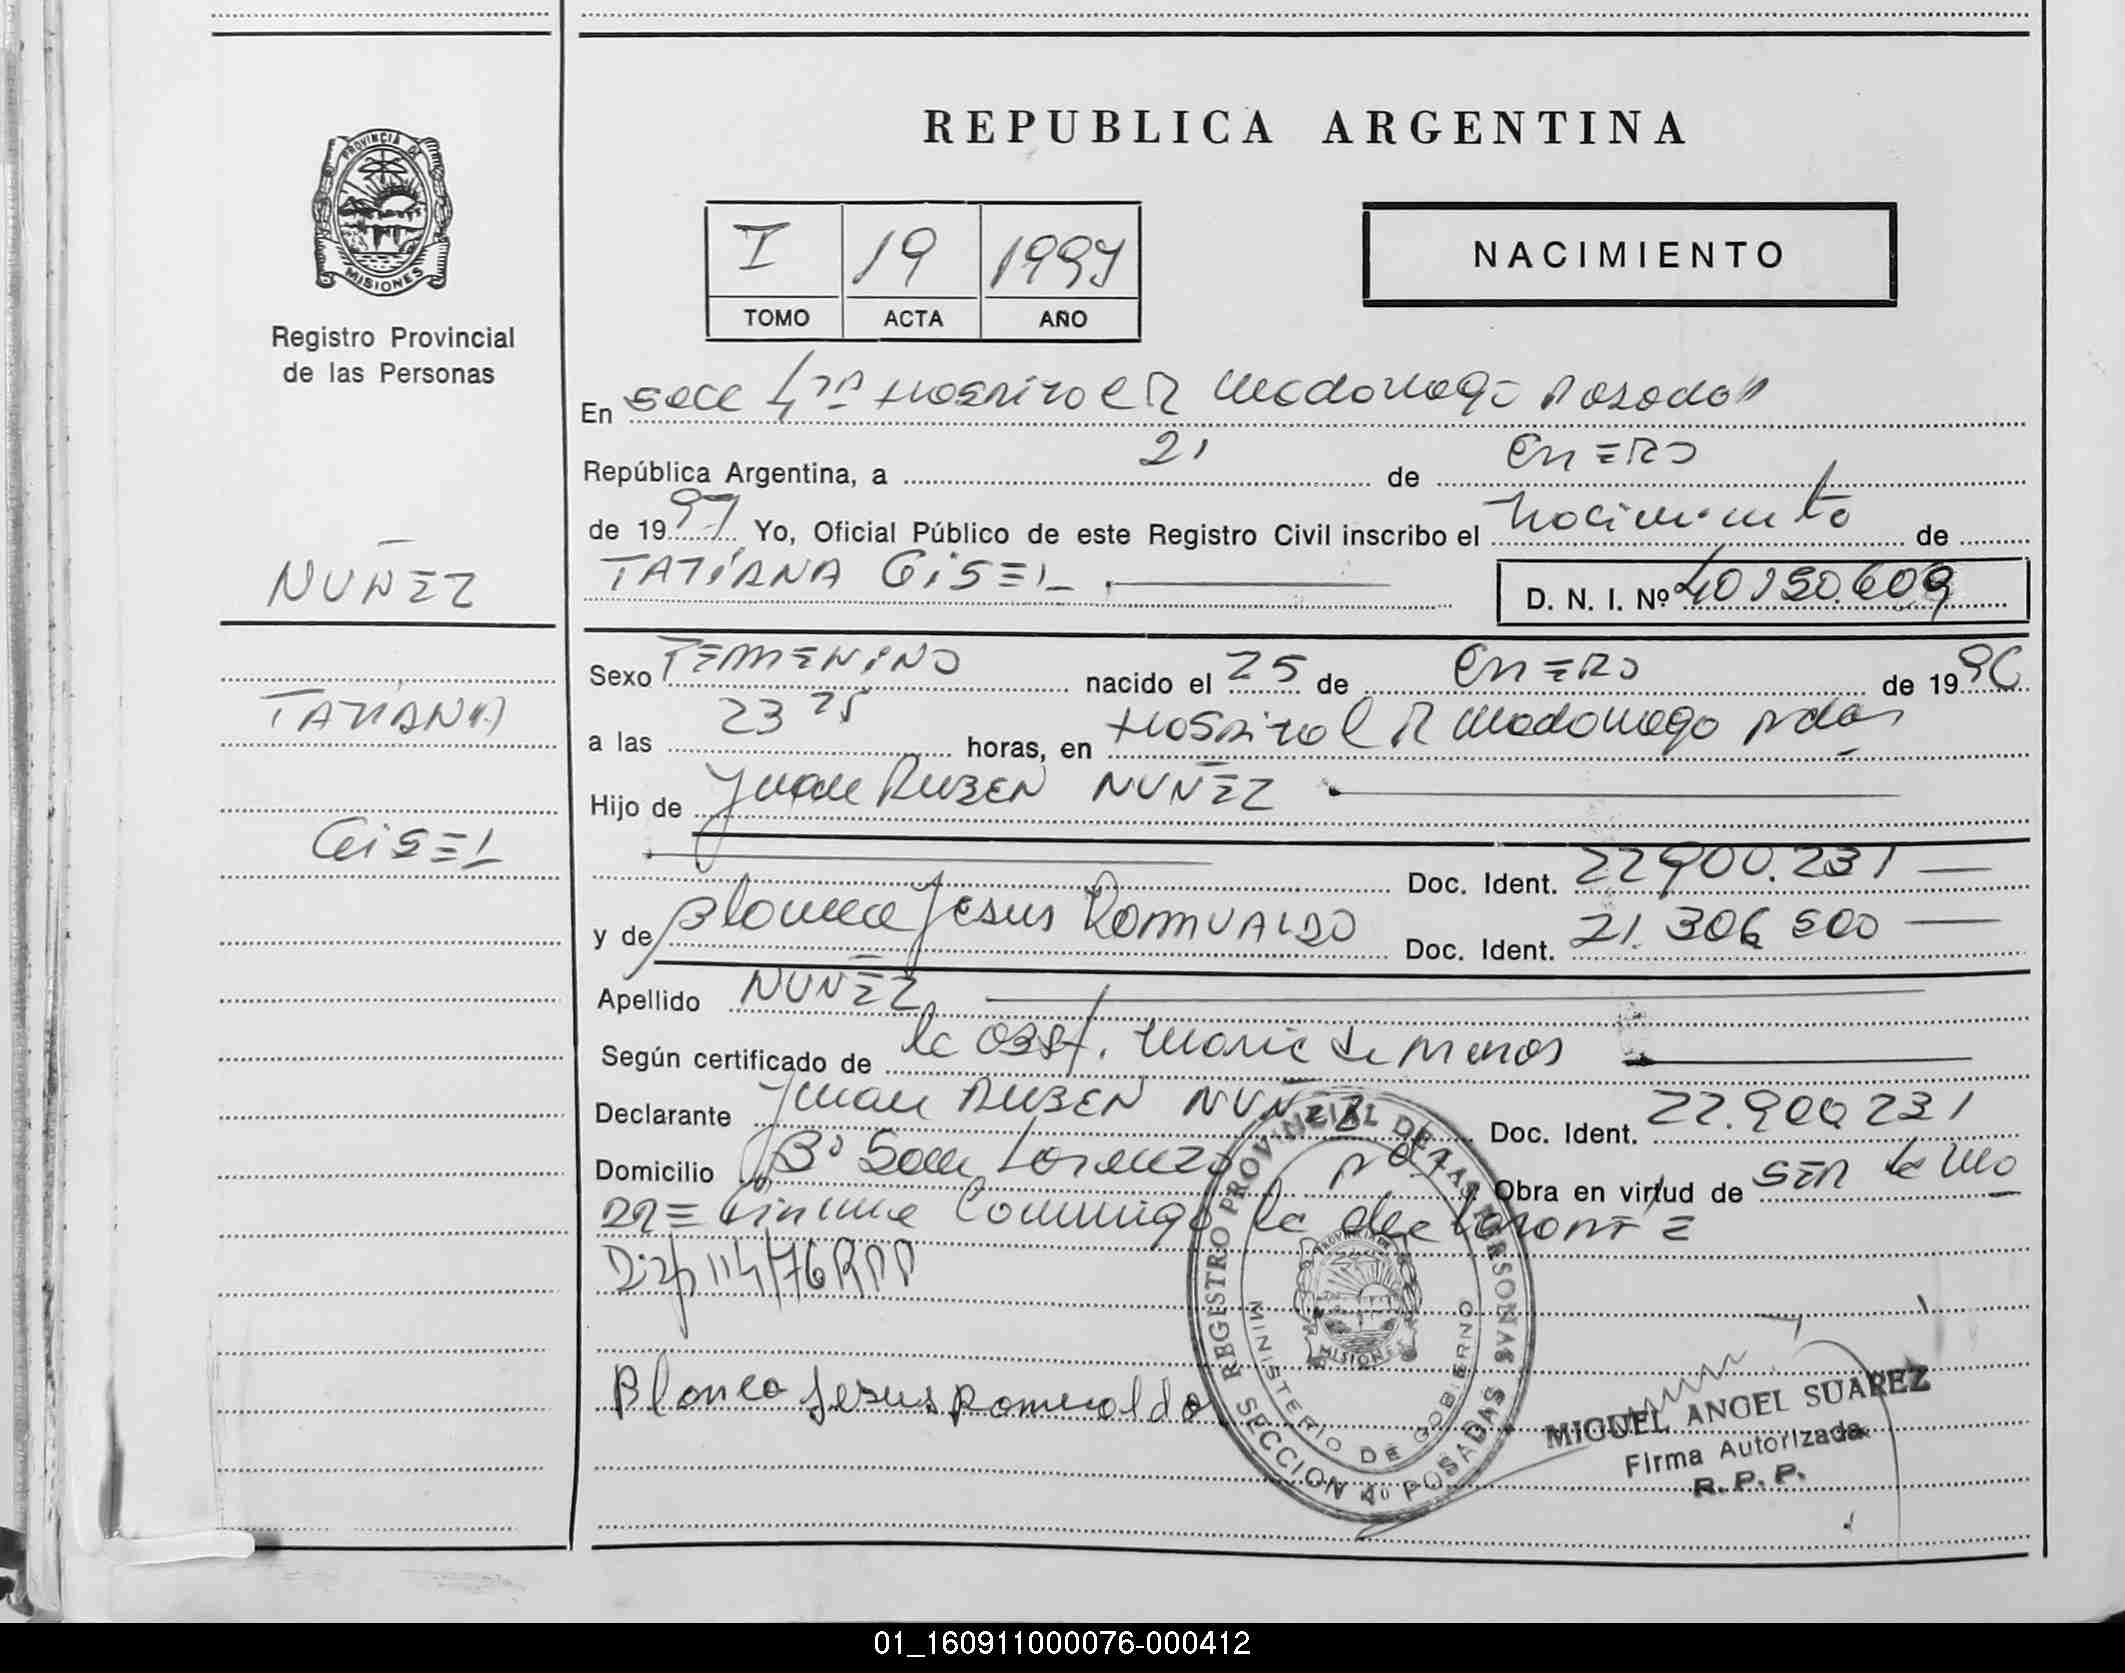 REPUBLICA ARGENTINA
PROVINCIA DE
MISIONES
Registro Provincial
de las Personas
I 19 1997
TOMO ACTA AÑO
NACIMIENTO
En Secc 4ta Hospital R Madariaga Posadas
República Argentina, a 21 de Enero
de 1997 Yo, Oficial Público de este Registro Civil inscribo el Nacimiento de
TATIANA GISEL
D. N. I. Nº 40.190.609
NUÑEZ
TATIANA
GISEL
Sexo FEMENINO nacido el 25 de Enero de 1996
a las 23 25 horas, en Hospital R Madariaga Pdas
Hijo de Juan RUBEN NUÑEZ
Doc. Ident. 22900.231
y de Blanca Jesus ROMUALDO Doc. Ident. 21.306 500
Apellido NUÑEZ
Según certificado de la Obst. Maria
Declarante Juan RUBEN NUÑEZ Doc. Ident. 22.900 231
Domicilio Bº San Lorenzo Obra en virtud de SER
la declarante
114/76 RPP
Blanca Jesus Romualdo
REGISTRO PROVINCIAL DE LAS PERSONAS
MINISTERIO DE GOBIERNO
PROVINCIA DE
MISIONES
SECCION 4º POSADAS
MIGUEL ANGEL SUAREZ
Firma Autorizada
R. P. P.
01_160911000076-000412